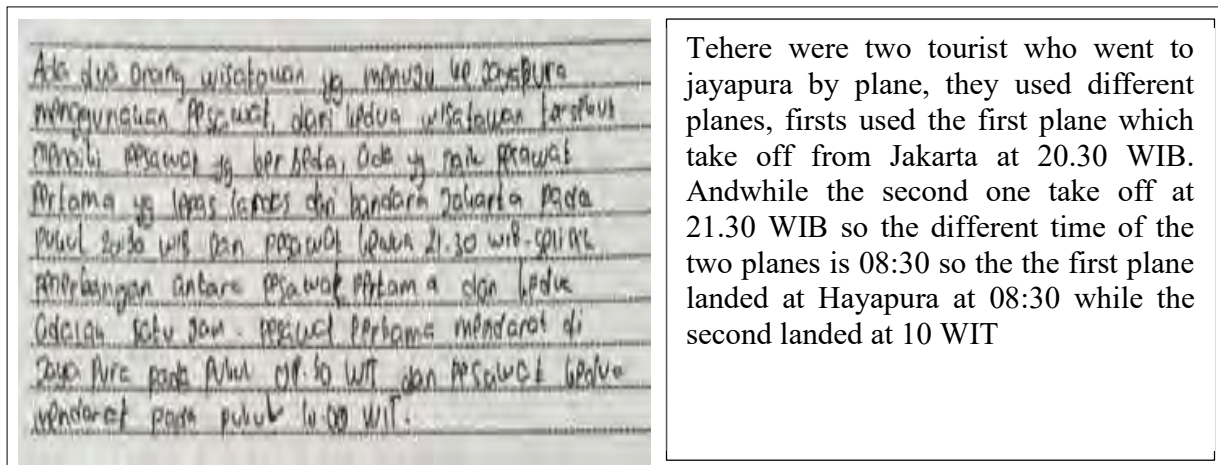 Ada dua orang wisatawan yg menuju ke Jayapura
menggunakan pesawat, dari kedua wisatawan tersebut
menaiki pesawat yg berbeda, ada yg naik pesawat
pertama yg lepas landas dari bandara Jakarta pada
pukul 20.30 WIB dan pesawat kedua 21.30 WIB. selisih
penerbangan antara pesawat pertama dan kedua
adalah satu jam. pesawat pertama mendarat di
Jaya Pura pada pukul WIT dan pesawat kedua
mendarat pada pukul WIT.
Tehere were two tourist who went to
jayapura by plane, they used different
planes, firsts used the first plane which
take off from Jakarta at 20.30 WIB.
Andwhile the second one take off at
21.30 WIB so the different time of the
two planes is 08:30 so the the first plane
landed at Hayapura at 08:30 while the
second landed at 10 WIT